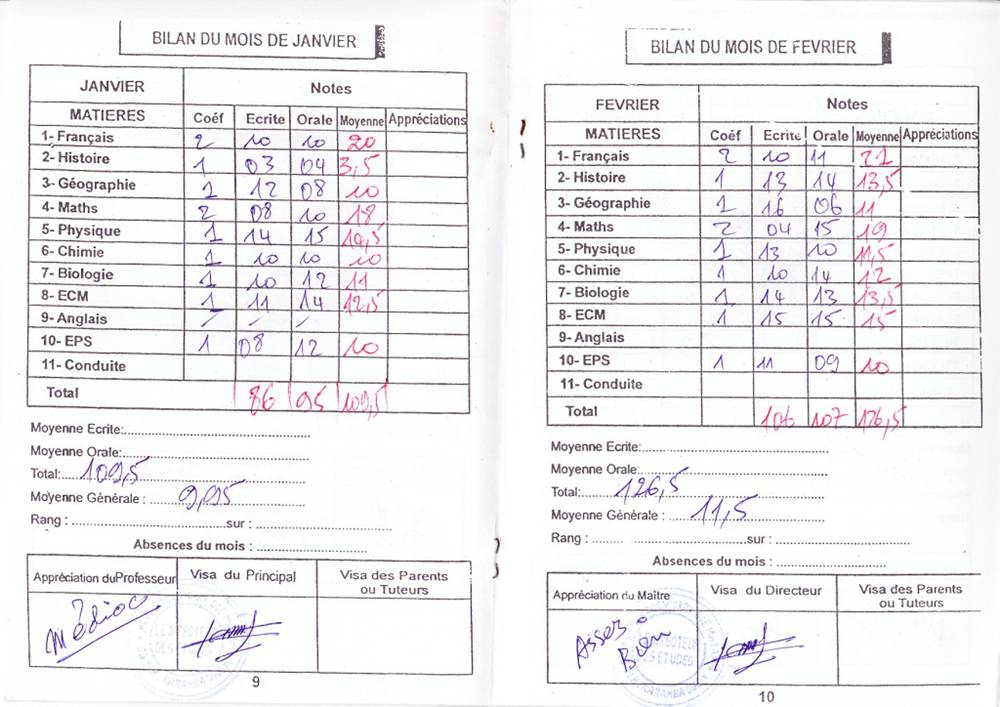 BILAN DU MOIS DE JANVIER
JANVIER Notes
MATIERES Coéf Ecrite Orale Moyenne Appréciations
1- Français 2 10 10 20
2- Histoire 1 03 04 3,5
3- Géographie 1 12 08 10
4- Maths 2 08 10 18
5- Physique 1 14 15 14,5
6- Chimie 1 10 10 10
7- Biologie 1 10 12 11
8- ECM 1 11 14 12,5
9- Anglais / / /
10- EPS 1 08 12 10
11- Conduite
Total 86 95 109,5
Moyenne Ecrite:
Moyenne Orale:
Total: 109,5
Moyenne Générale : 9,95
Rang : sur :
Absences du mois :
Appréciation du Professeur Visa du Principal Visa des Parents ou Tuteurs
Médioc
9
BILAN DU MOIS DE FEVRIER
FEVRIER Notes
MATIERES Coéf Ecrite Orale Moyenne Appréciations
1- Français 2 10 11 21
2- Histoire 1 13 14 13,5
3- Géographie 1 16 06 11
4- Maths 2 04 15 19
5- Physique 1 13 10 11,5
6- Chimie 1 10 14 12
7- Biologie 1 14 13 13,5
8- ECM 1 15 15 15
9- Anglais
10- EPS 1 11 09 10
11- Conduite
Total 106 107 126,5
Moyenne Ecrite:
Moyenne Orale:
Total: 126,5
Moyenne Générale : 11,5
Rang : sur :
Absences du mois :
Appréciation du Maître Visa du Directeur Visa des Parents ou Tuteurs
Assez
Bien
10